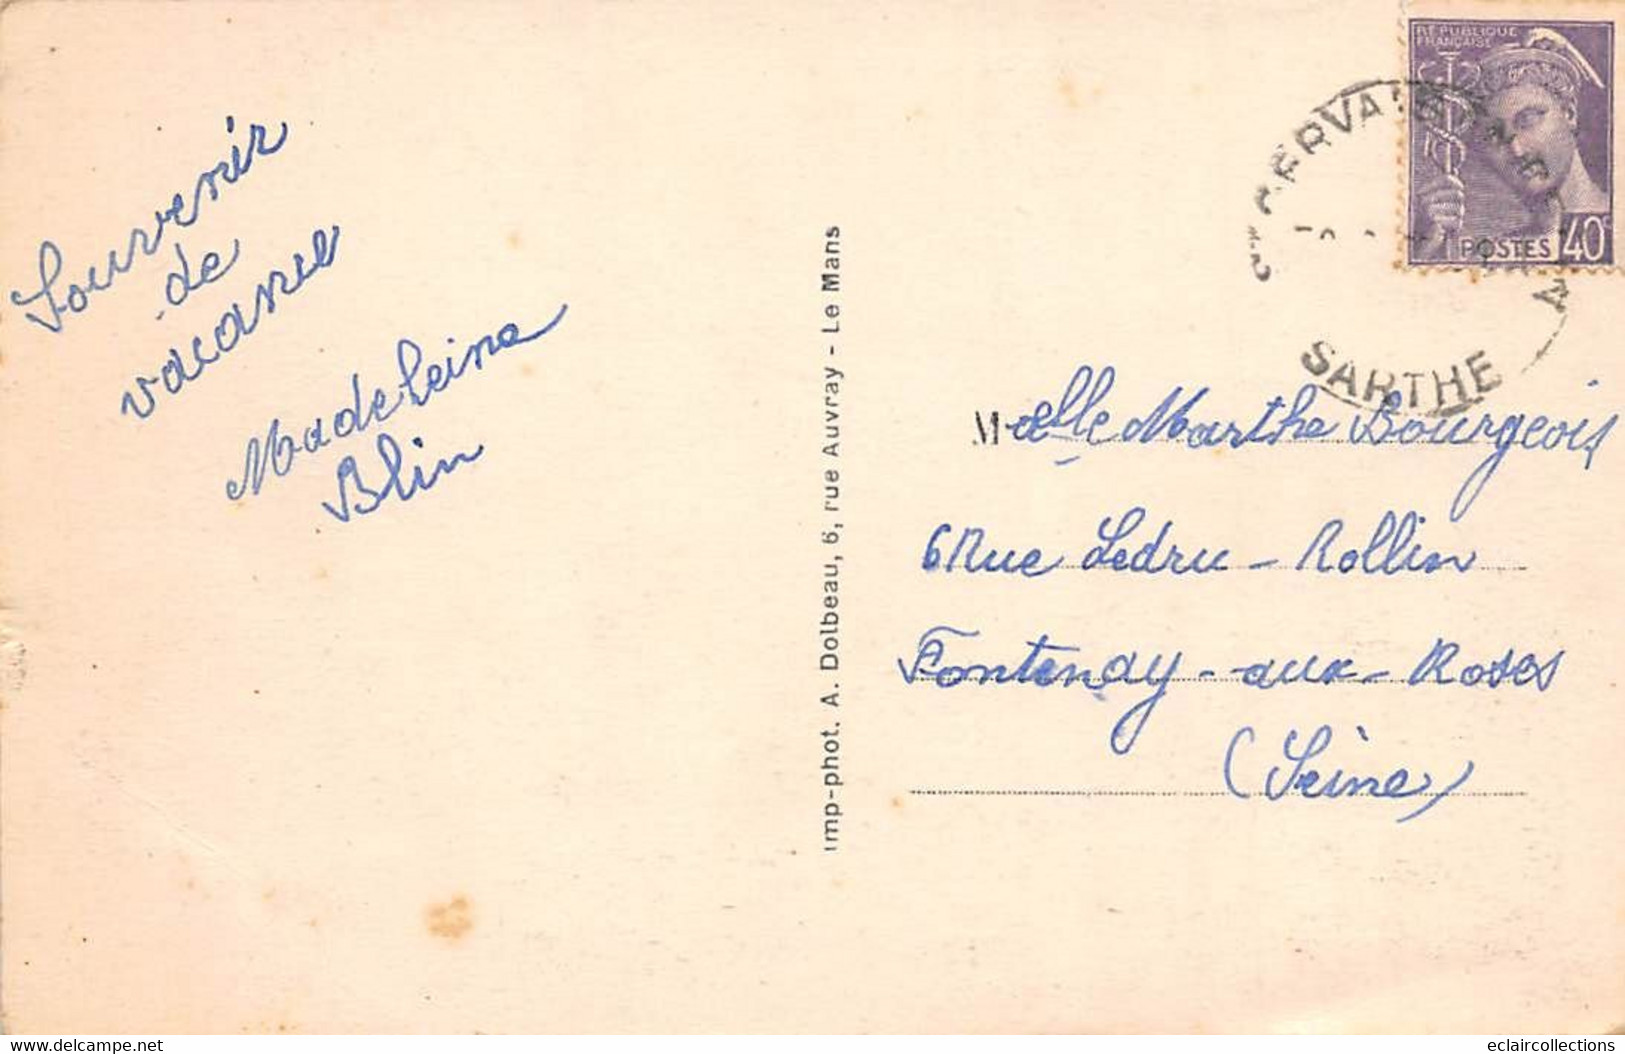 Souvenir
de
vacances
Madeleine
Blin
Imp-phot. A. Dolbeau, 6, rue Auvray - Le Mans
RÉPUBLIQUE
FRANÇAISE
POSTES 40c
SARTHE
Melle Marthe Bourgeois
6 Rue Ledru-Rollin
Fontenay-aux-Roses
(Seine)
eclaircollections
delcampe.net